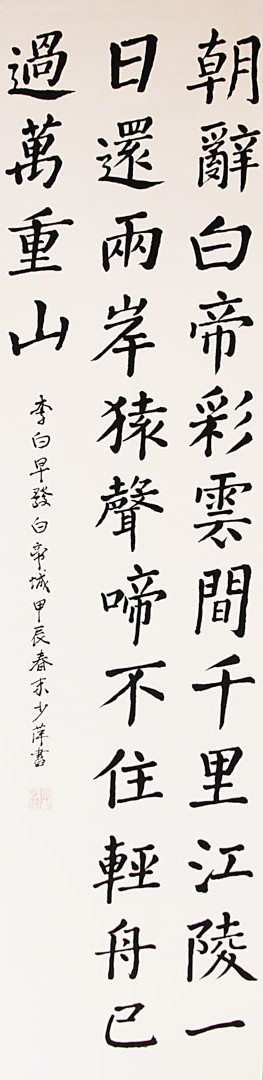 朝辭白帝彩雲間千里江陵一
日還兩岸猿聲啼不住輕舟已
過萬重山
李白早發白帝城甲辰春末少萍書